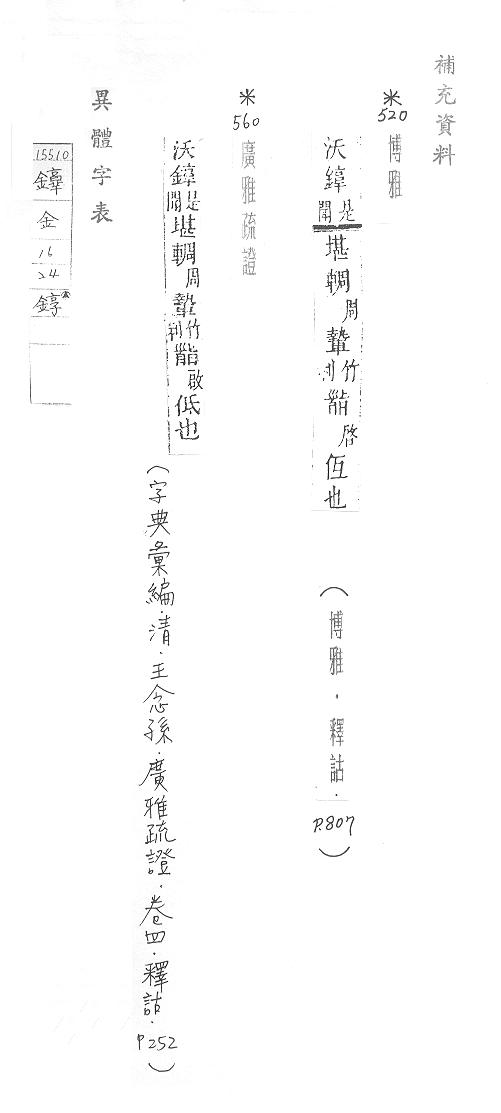 補充資料
※520 博雅
沃鍏是閏堪輖周蟄竹利䭫啓仾也
(博雅.釋詁.P.807)
※560 廣雅疏證
是閏堪輖周竹利啟低也
(字典彙編.清.王念孫.廣雅疏證.卷四.釋詁.P252)
異體字表
15510
金
16
24
錞